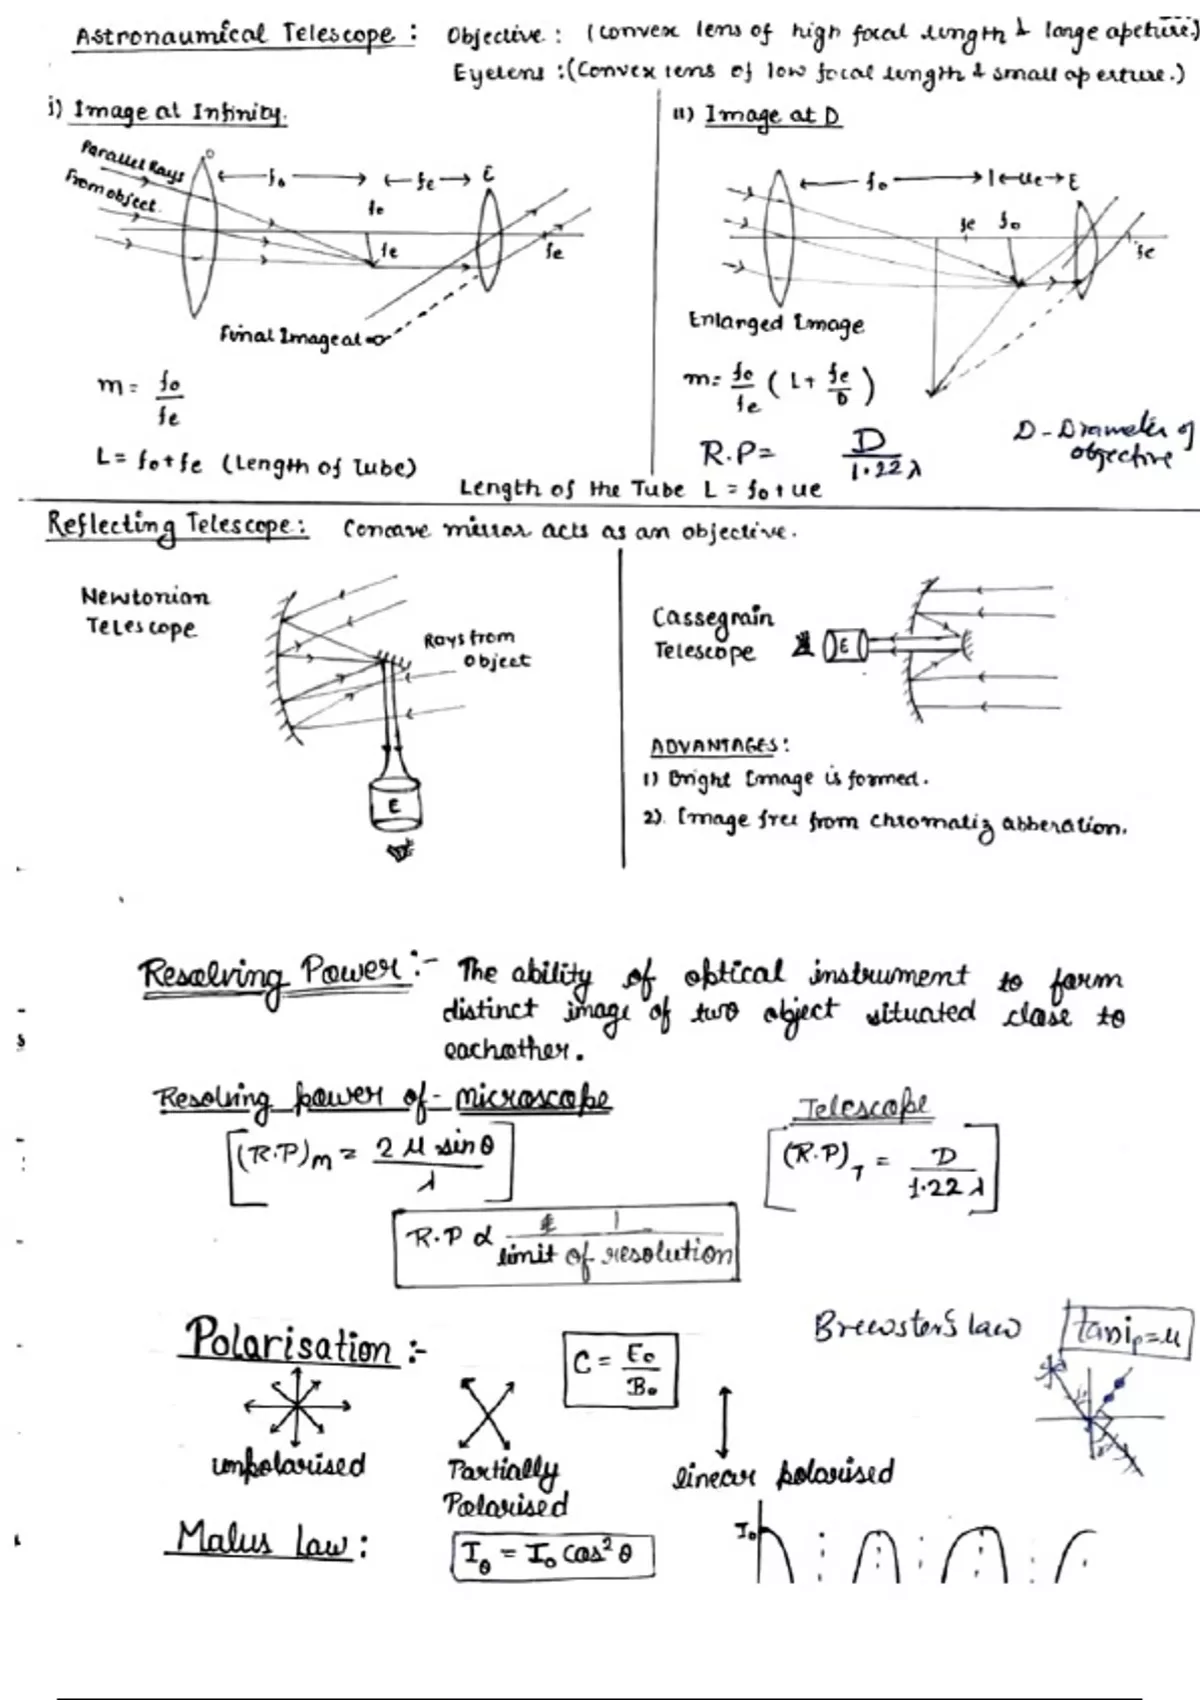 Astronaumical Telescope : Objective : (Convex lens of high focal length & large apeture.)
Eyelens : (Convex lens of low focal length & small aperture.)
i) Image at Infinity.
Parallel Rays
From object
O
fo
fe
E
fo
fe
fe
Final Image at ∞
m = fo/fe
L = fo+fe (Length of Tube)
ii) Image at D
fo
ue
E
fe
fo
fe
Enlarged Image
m = fo/fe (1 + fe/D)
R.P = D/1.22λ
D - Diameter of
objective
Length of the Tube L = fo + ue
Reflecting Telescope : Concave mirror acts as an objective.
Newtonian
Telescope
Rays from
Object
E
Cassegrain
Telescope
E
ADVANTAGES :
1) Bright Image is formed.
2). Image free from chromatic abberation.
Resolving Power :- The ability of optical instrument to form
distinct image of two object situated close to
eachother.
Resolving power of - microscope
Telescope
(R.P)m = 2 μ sinθ/λ
(R.P)T = D/1.22 λ
R.P α 1/limit of resolution
Polarisation :-
C = Eo/Bo
Brewster's law
tan ip = μ
unpolarised
Partially
Polarised
linear polarised
Malus Law :
Iθ = Io cos² θ
Io